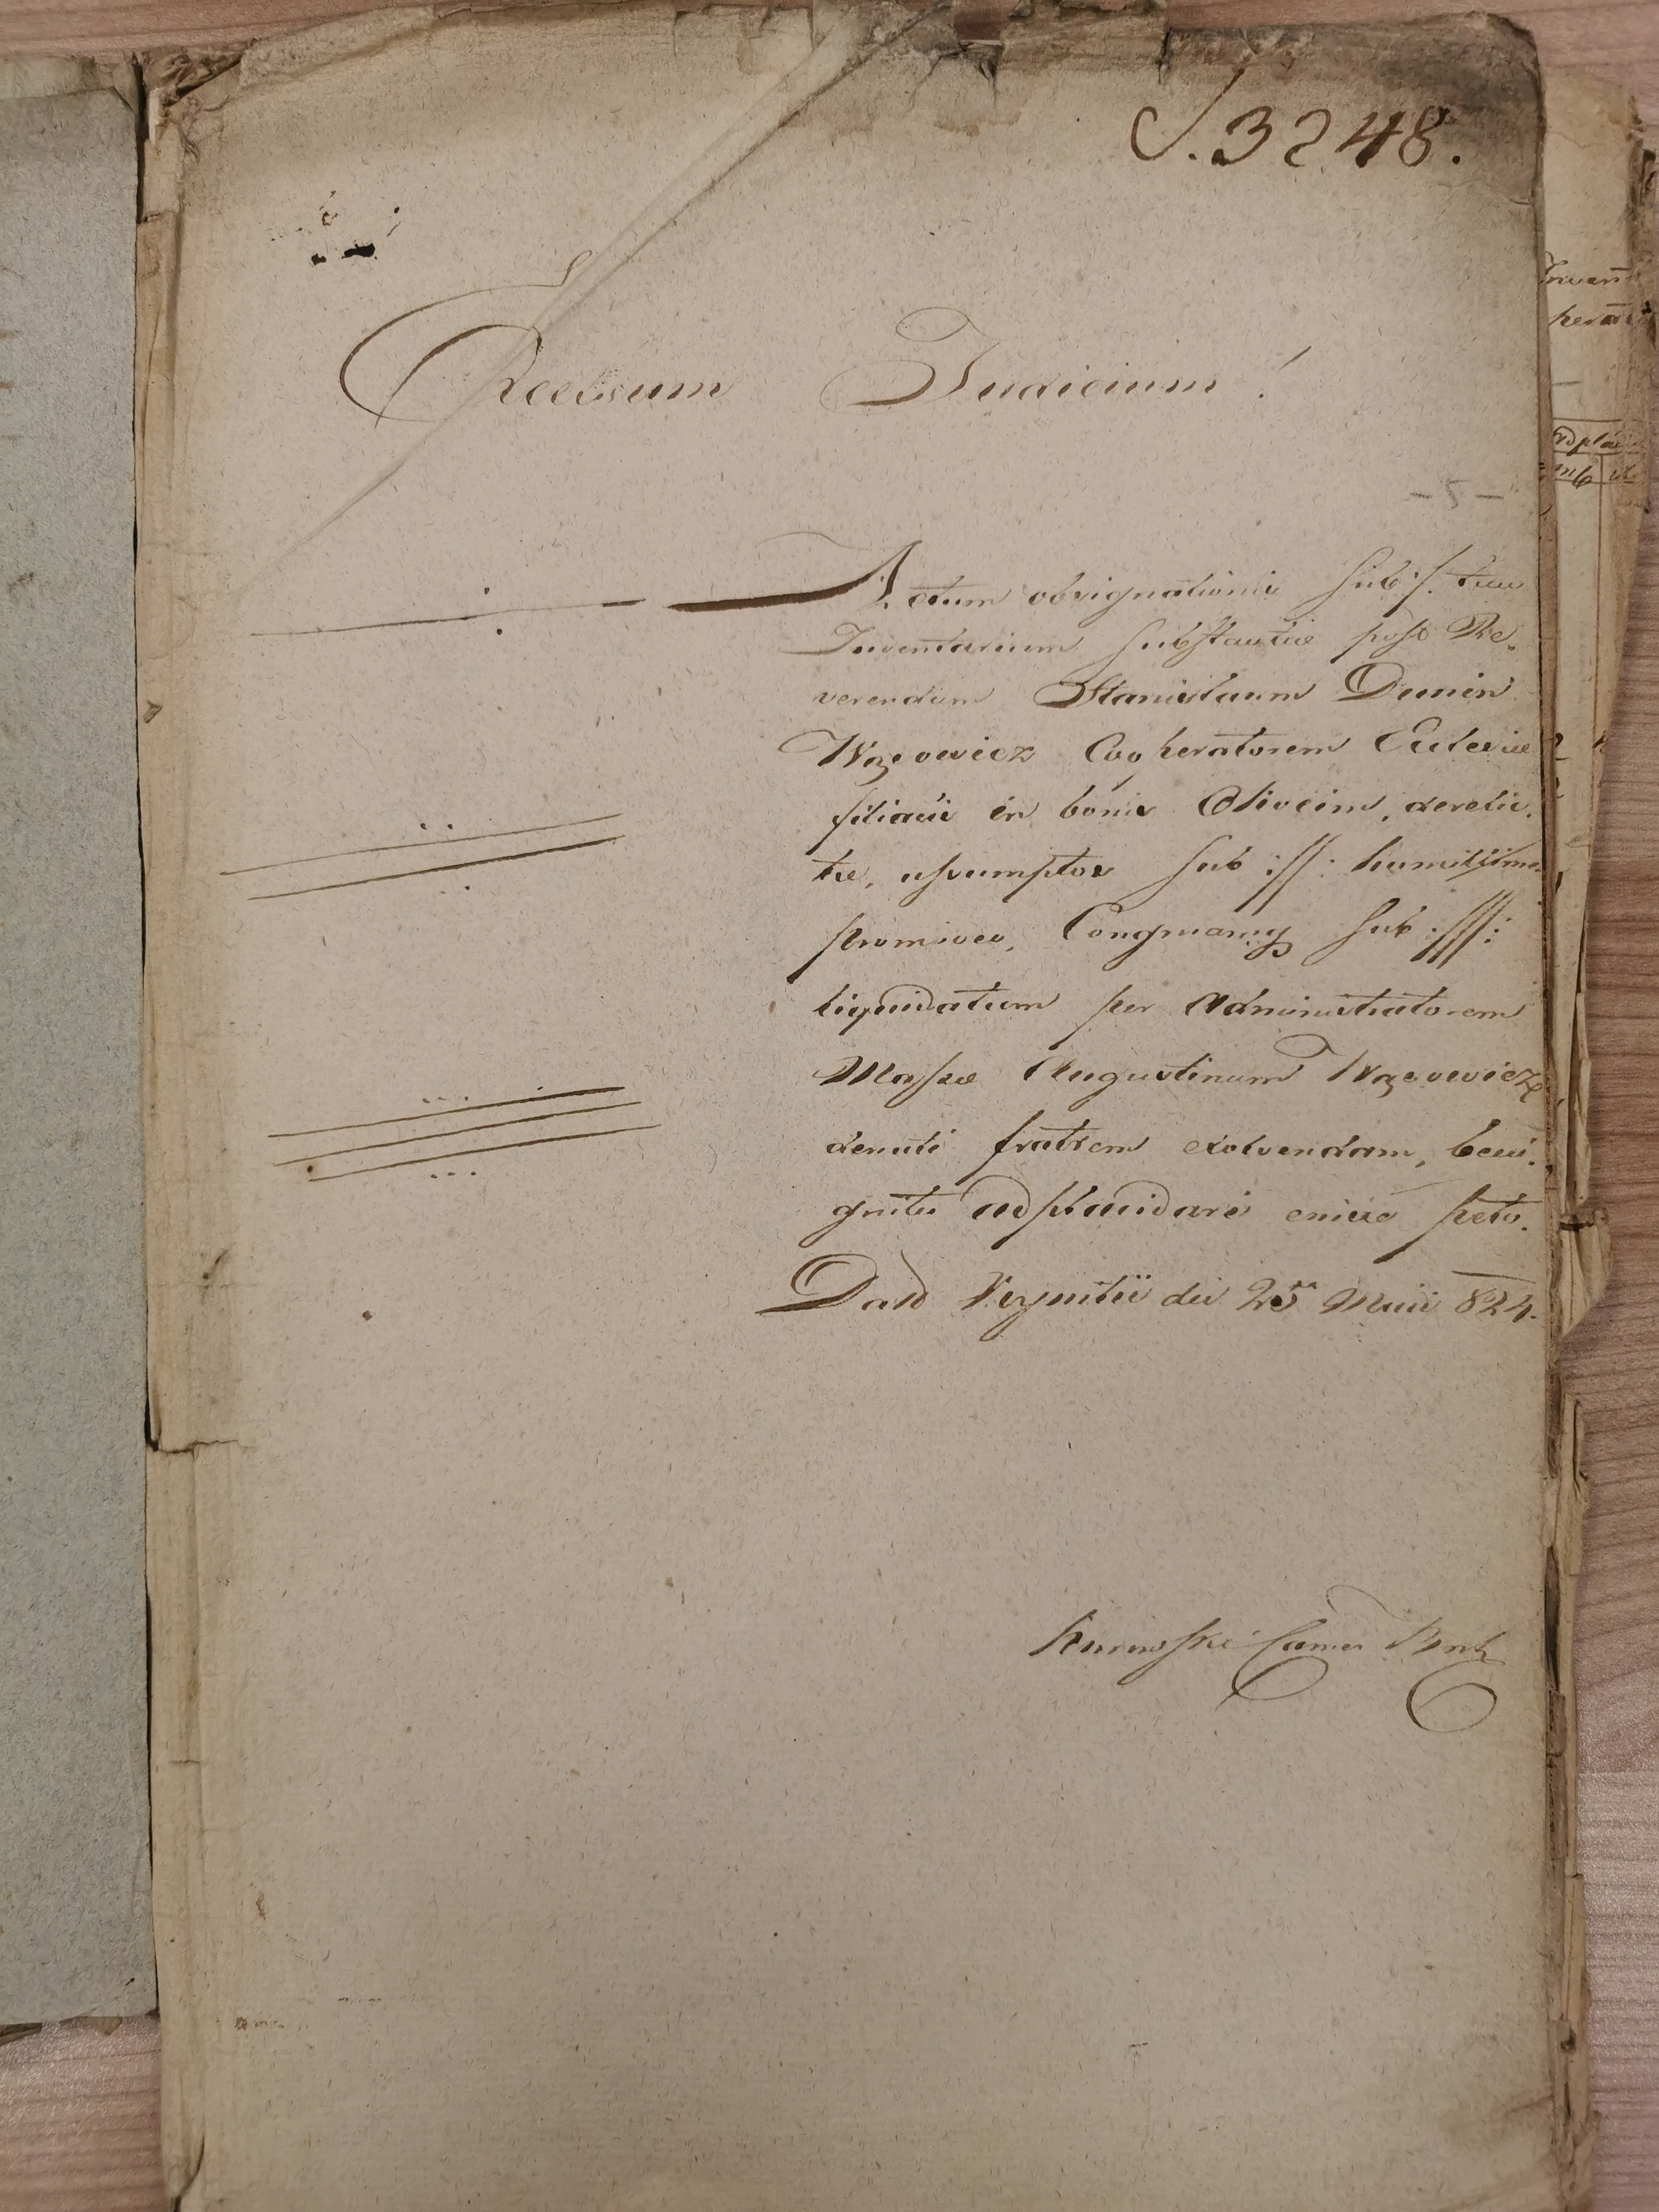 J. 3248.
Excelsum Judicium!
- 5 -
Actum obsignationis sub ·/. tum
Inventarium Substantiae post Re-
verendum Stanislaum Dunin
Wąsowicz Cooperatorem Ecclesiae
filialis in bonis Oliveim, derelic-
tae, assumptos sub ://: humillime
promoveo, Congruamq sub :///:
liquidatam per Administratorem
Massae Augustinum Wąsowicz
denati fratrem exolvendam, beni-
gnite adplacidari enixe peto.
Datt die 25ta Maii 824.
Kurowski Camer